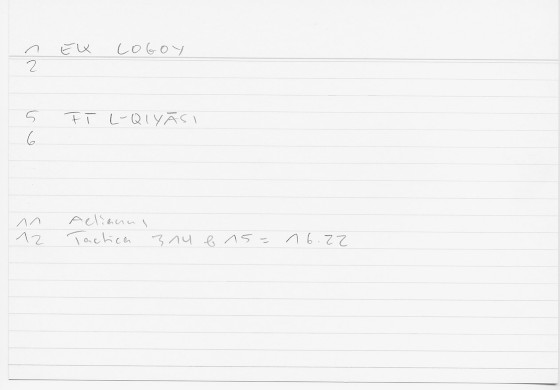 1 EK LOGOY
2
5 FT L-QIYĀSI
6
11 Aelianus
12 Tactica 314 b 15 = 16.22